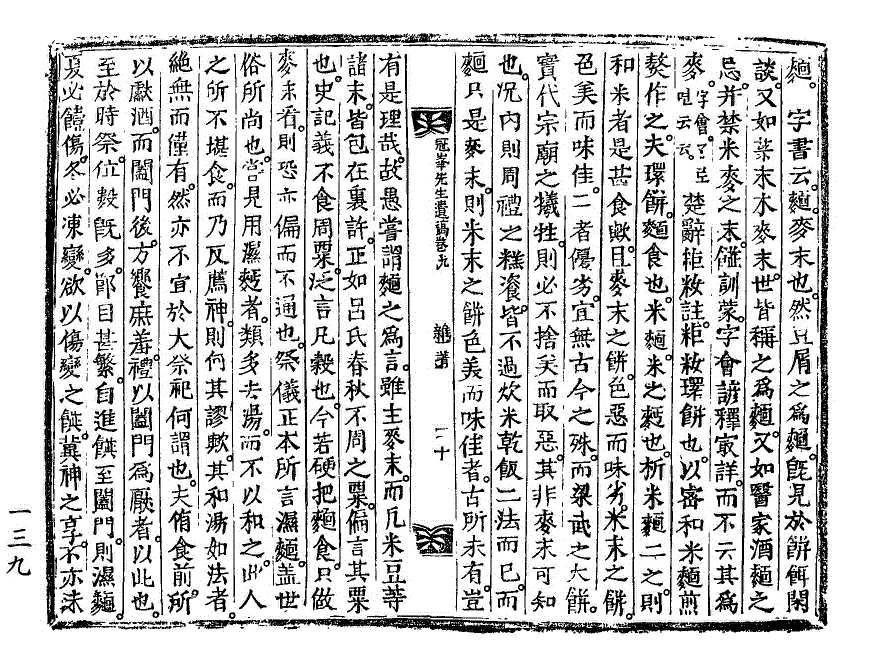 麵。字書云。麵。麥末也。然豆屑之爲麵。旣見於餠餌閑
談。又如柒末木麥末。世皆稱之爲麵。又如醫家酒麵之
忌。幷禁米麥之末。雖訓蒙字會諺釋最詳。而不云其爲
麥。字會 云云。楚辭粔籹註。粔籹環餠也。以蜜和米麵煎
熬作之。夫環餠。麵食也。米麵。米之麪也。析米麵二之。則
和米者是甚食歟。且麥末之餠。色惡而味劣。米末之餠。
色美而味佳。二者優劣。宜無古今之殊。而梁武之大餠。
實代宗廟之犧牲。則必不捨美而取惡。其非麥末可知
也。况內則周禮之糗餈。皆不過炊米乾飯二法而已。而
麵只是麥末。則米末之餠色美而味佳者。古所未有。豈
冠峯先生遺稿卷九 雜著 二十
有是理哉。故愚嘗謂麵之爲言。雖主麥末。而凡米豆等
諸末。皆包在裏許。正如呂氏春秋不周之粟。偏言其粟
也。史記義不食周粟。泛言凡穀也。今若硬把麵食。只做
麥末看。則恐亦偏而不通也。祭儀正本所言濕麵。盖世
俗所尚也。嘗見用濕麪者。類多去湯。而不以和之。此人
之所不堪食。而乃反薦神。則何其謬歟。其和湯如法者。
絶無而僅有。然亦不宜於大祭祀何謂也。夫侑食前。所
以獻酒。而闔門後。方饗庶羞。禮以闔門爲厭者。以此也。
至於時祭。位數旣多。節目甚繁。自進饌至闔門。則濕麵
夏必饐傷。冬必凍變。欲以傷變之饌。冀神之享。不亦未
一三九